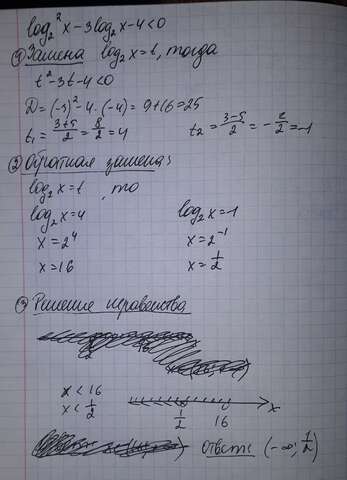 log₂²x-3log₂x-4<0
① Замена log₂x=t, тогда
t²-3t-4<0
D=(-3)²-4·(-4)=9+16=25
t₁=(3+5)/2=8/2=4 t₂=(3-5)/2=-2/2=-1
② Обратная замена:
log₂x=t, то
log₂x=4 log₂x=-1
x=2⁴ x=2⁻¹
x=16 x=1/2
③ Решение неравенства
x<16
x<1/2
1/2 16 x
Ответ: (-∞; 1/2)